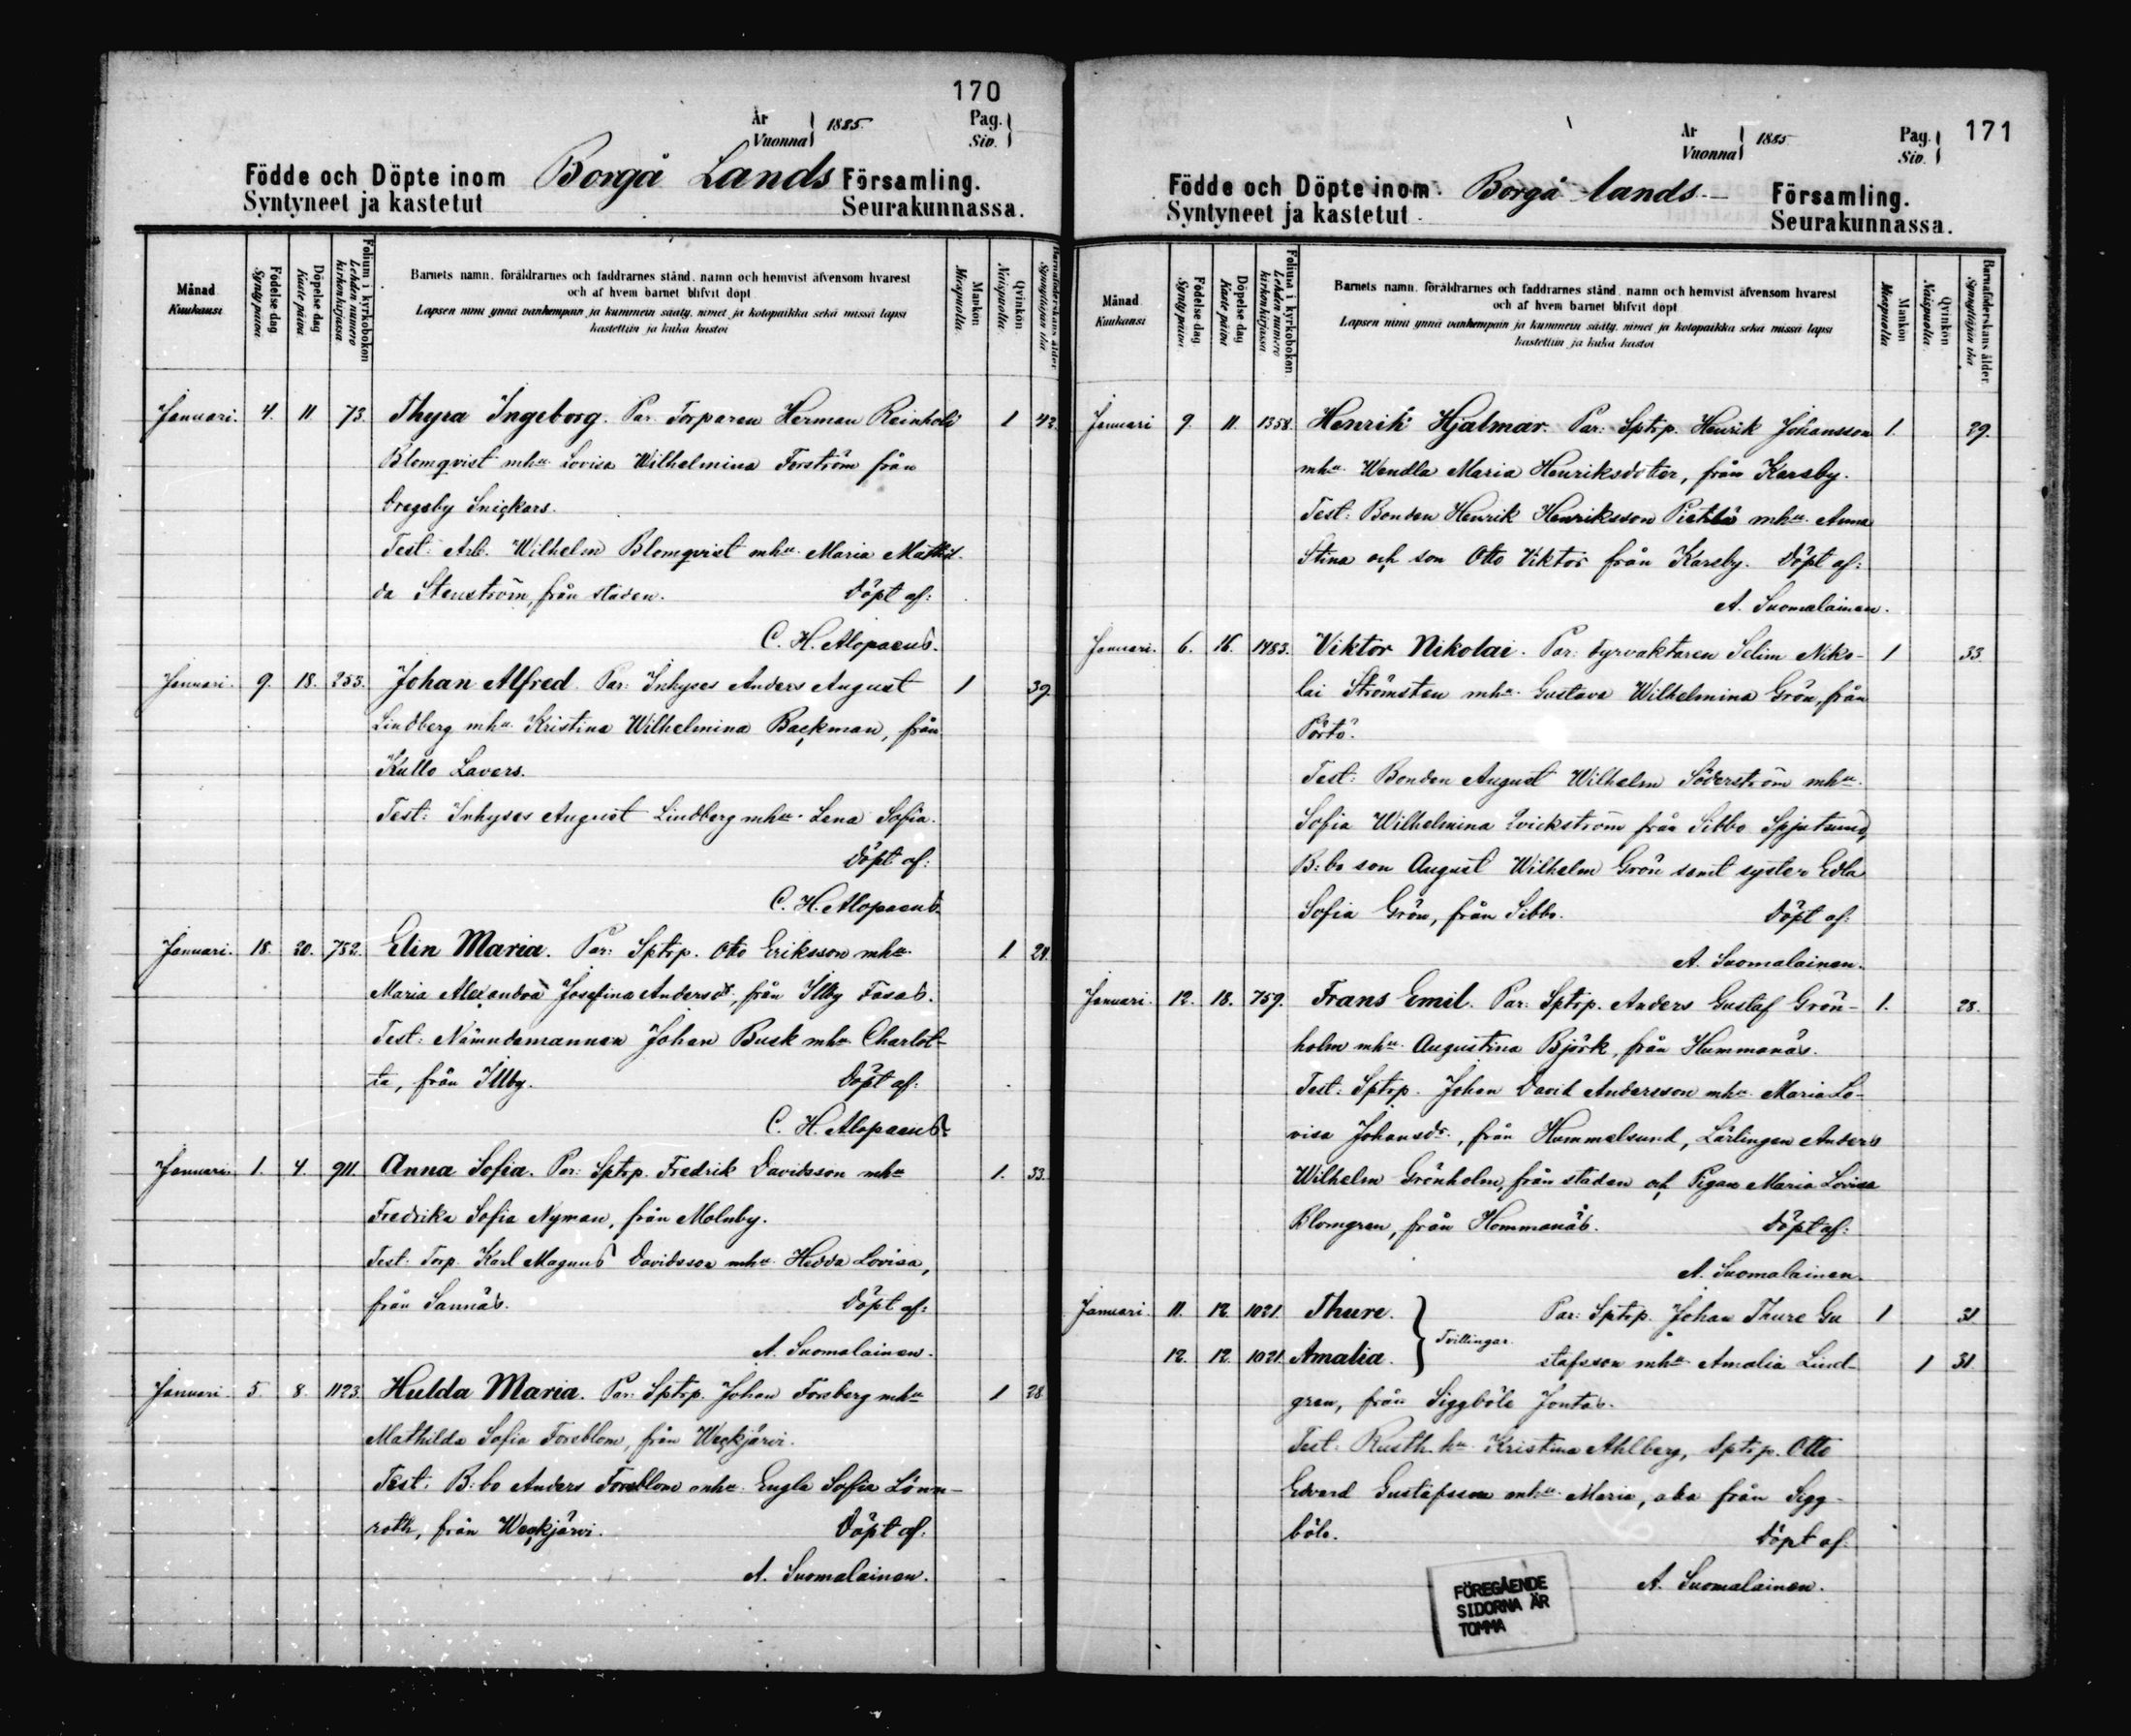 170
År
Vuonna
1885.
Pag.
Siv.
Födde och Döpte inom Borgå Lands Församling.
Syntyneet ja kastetut Seurakunnassa.
Månad
Kuukausi
Födelse dag
Synty päivä
Döpelse dag
Kaste päivä
Folium i kyrkoboken
Lehden numero kirkonkirjassa
Barnets namn, föräldrarnes och faddrarnes stånd, namn och hemvist äfvensom hvarest
och af hvem barnet blifvit döpt
Lapsen nimi ynnä vanhempain ja kummein sääty, nimet ja kotopaikka sekä missä lapsi
kastettiin ja kuka kastoi
Mankön
Miespuolia
Qvinkön
Naispuolia
Barnaföderskans ålder
Synnyttäjän ikä
Januari. 4. 11 73. Thyra Ingeborg. Par. Torparen Herman Reinhold 1 42.
Blomqvist mhu Lovisa Wilhelmina Forström från
Dregsby Snickars.
Test: Arb. Wilhelm Blomqvist mhu Maria Mathil-
da Stenström, från staden. Döpt af:
C. H. Alopaeus.
Januari. 9. 18. 253. Johan Alfred. Par: Inhyses Anders August 1 39
Lindberg mhu Kristina Wilhelmina Backman, från
Kullo Lavers.
Test: Inhyses August Lindberg mhu Lena Sofia.
Döpt af:
C. H. Alopaeus.
Januari. 18. 20. 752. Elin Maria. Par: Sptrp. Otto Eriksson mhu 1. 21.
Maria Alexandra Josefina Andersdr., från Illby Fasas.
Test: Nämndemannen Johan Busk mhu Charlot-
ta, från Illby. Döpt af:
C. H. Alopaeus.
Januari. 1. 4. 911. Anna Sofia. Par: Sptrp. Fredrik Davidsson mhu 1. 33.
Fredrika Sofia Nyman, från Molnby.
Test: Torp. Karl Magnus Davidsson mhu Hedda Lovisa,
från Sannäs. Döpt af:
A. Suomalainen.
Januari 5 8. 1123. Hulda Maria. Par: Sptrp. Johan Forsberg mhu 1 28.
Mathilda Sofia Forsblom, från Weckjärvi.
Test: B:bo Anders Forsblom mhu Engla Sofia Lönn-
roth, från Weckjärvi. Döpt af.
A. Suomalainen.
År
Vuonna
1885.
Pag.
Siv.
171
Födde och Döpte inom Borgå lands Församling.
Syntyneet ja kastetut Seurakunnassa.
Månad
Kuukausi
Födelse dag
Synty päivä
Döpelse dag
Kaste päivä
Folium i kyrkoboken
Lehden numero kirkonkirjassa
Barnets namn, föräldrarnes och faddrarnes stånd, namn och hemvist äfvensom hvarest
och af hvem barnet blifvit döpt
Lapsen nimi ynnä vanhempain ja kummein sääty, nimet ja kotopaikka sekä missä lapsi
kastettiin ja kuka kastoi
Mankön
Miespuolia
Qvinkön
Naispuolia
Barnaföderskans ålder.
Synnyttäjän ikä
Januari 9. 11. 1358. Henrik Hjalmar. Par: Sptrp. Henrik Johansson 1. 29.
mhu Wendla Maria Henriksdotter, från Karsby.
Test: Bonden Henrik Henriksson Pietilä mhu Anna
Stina och son Otto Viktor från Karsby. Döpt af:
A. Suomalainen.
Januari. 6. 16. 1483. Viktor Nikolai. Par: fyrvaktaren Selim Niko- 1 33.
lai Strömsten mhu Gustava Wilhelmina Grön, från
Pörtö.
Test: Bonden August Wilhelm Söderström mhu
Sofia Wilhelmina Qvickström från Sibbo Spjutsund,
B:bo son August Wilhelm Grön samt syster Edla
Sofia Grön, från Sibbo. Döpt af:
A. Suomalainen.
Januari. 12. 18. 759. Frans Emil. Par: Sptrp. Anders Gustaf Grön- 1. 28.
holm mhu Augustina Björk, från Hummanäs.
Test: Sptrp. Johan David Andersson mhu Maria Lo-
visa Johansdr., från Hammelsund, Lärlingen Anders
Wilhelm Grönholm, från staden och Pigan Maria Lovisa
Blomgren, från Hommanäs. Döpt af:
A. Suomalainen.
Januari. 11. 12. 1021. Thure. Par: Sptrp. Johan Thure Gu 1 31
Tvillingar.
12. 12. 1021 Amalia. stafsson mhu Amalia Lind- 1 31.
gren, från Siggböle Jontas.
Test: Rusth. hu Kristina Ahlberg, Sptrp. Otto
Edvard Gustafsson mhu Maria, alla från Sigg-
böle. Döpt af:
A. Suomalainen.
FÖREGÅENDE
SIDORNA ÄR
TOMMA